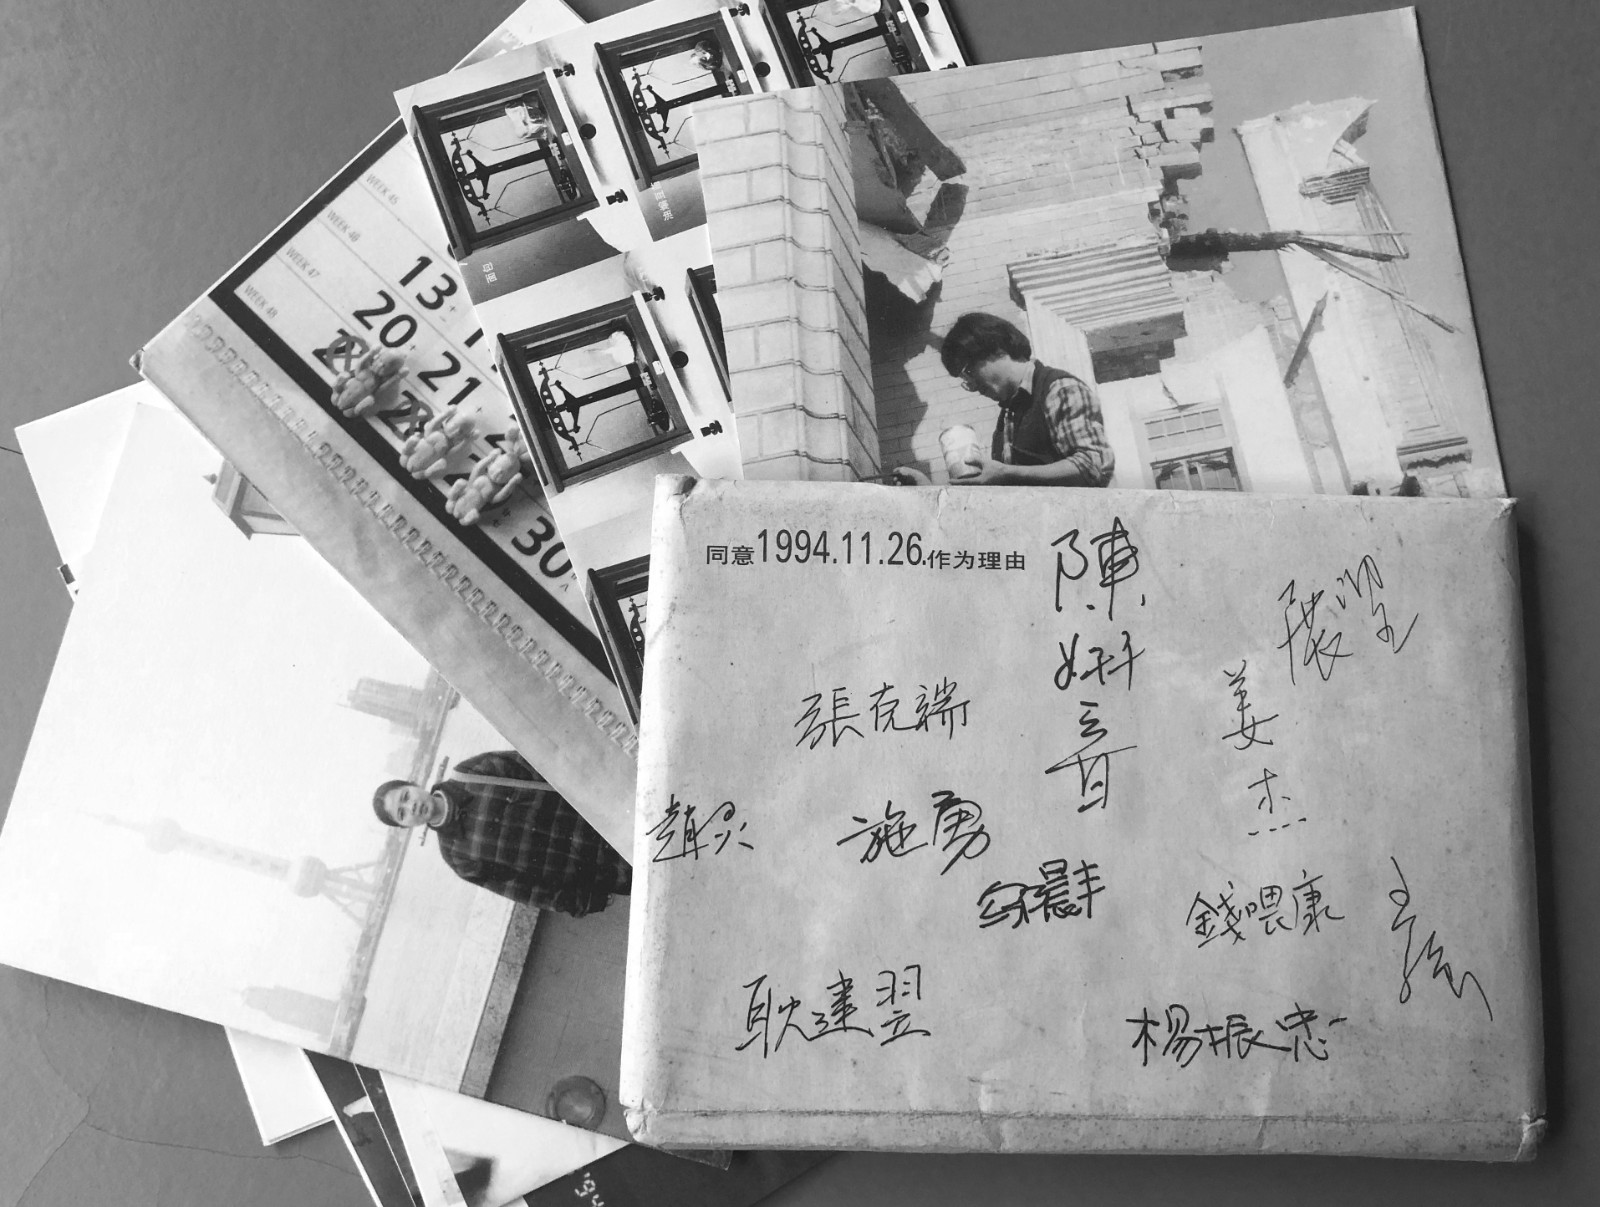 WEEK 45
WEEK 46
WEEK 47
WEEK 48
13
20 21
30
同意1994.11.26.作为理由
陳妍音
張克端
姜杰
趙
施勇
晨丰
錢喂康
耿建翌
楊振忠
'94